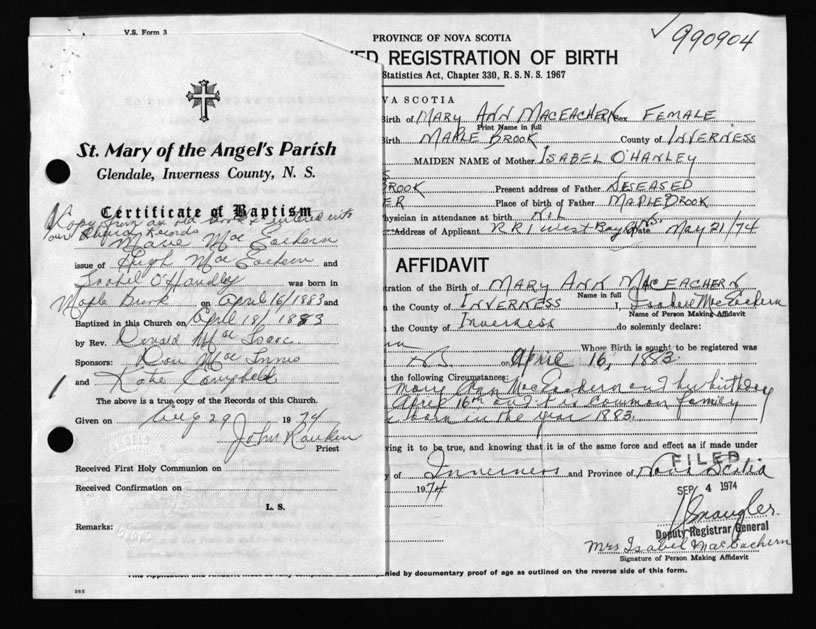 V.S. Form 3
St. Mary of the Angel's Parish
Glendale, Inverness County, N. S.
Certificate of Baptism
Copy from an old entered into
our Church Records
Marie Mac Eachern
issue of Hugh Mac Eachern and
Isobel O'Handley was born in
Maple Brook on April 16/1883 and
Baptized in this Church on April 18/1883
by Rev. Donald Mac Isaac
Sponsors: Don Mac Innis
and Katie Campbell
The above is a true copy of the Records of this Church.
Given on Aug 29 1974
John Rankin
Priest
Received First Holy Communion on
Received Confirmation on
L. S.
Remarks:
365
990904
PROVINCE OF NOVA SCOTIA
ED REGISTRATION OF BIRTH
Statistics Act, Chapter 330, R. S. N. S. 1967
OVA SCOTIA
Birth of MARY ANN MACEACHERN Sex FEMALE
Print Name in full
Birth MAPLE BROOK County of INVERNESS
MAIDEN NAME of Mother ISABEL O'HANLEY
S
BROOK Present address of Father DESEASED
ER Place of birth of Father MAPLE BROOK
Physician in attendance at birth NIL
Address of Applicant RR1 West Bay Rd N.S. Date May 21/74
AFFIDAVIT
tration of the Birth of MARY ANN MACEACHERN
Name in full
n the County of INVERNESS I, Isabel MacEachern
Name of Person Making Affidavit
the County of Inverness do solemnly declare:
Whose Birth is sought to be registered was
N.S. on April 16, 1883
the following Circumstances:
Mary Ann MacEachern and her birthday
April 16th and it is Common family
born in the year 1883.
ving it to be true, and knowing that it is of the same force and effect as if made under
y of Inverness and Province of Nova Scotia
1974
FILED
SEP 4 1974
Deputy Registrar General
Mrs Isabel MacEachern
Signature of Person Making Affidavit
This Application and Affidavit by documentary proof of age as outlined on the reverse side of this form.